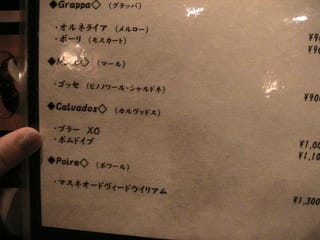 ◆Grappa◇ (グラッパ)
・オルネライア (メルロー)
・ポーリ (モスカート)
(マール)
・ゴッセ (ピノノワール・シャルドネ)
◆Calvados◇ (カルヴァドス)
・ブラー XO
・ポムドイブ ¥1,10
◆Poire◇ (ポワール)
・マスネオードヴィードウイリアム
¥1,300